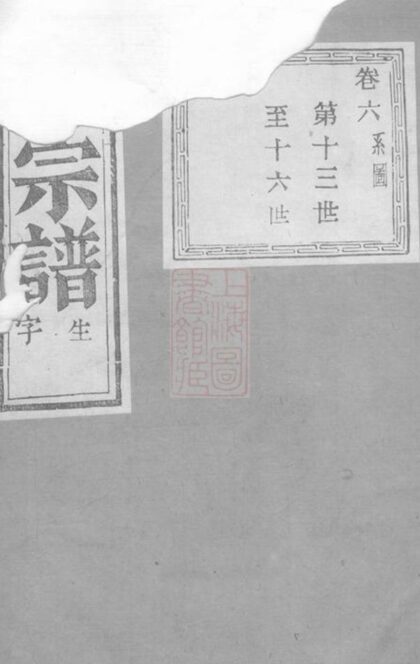 卷六系圖
第十三世
至十六世
宗譜
生字
上海圖
書館藏